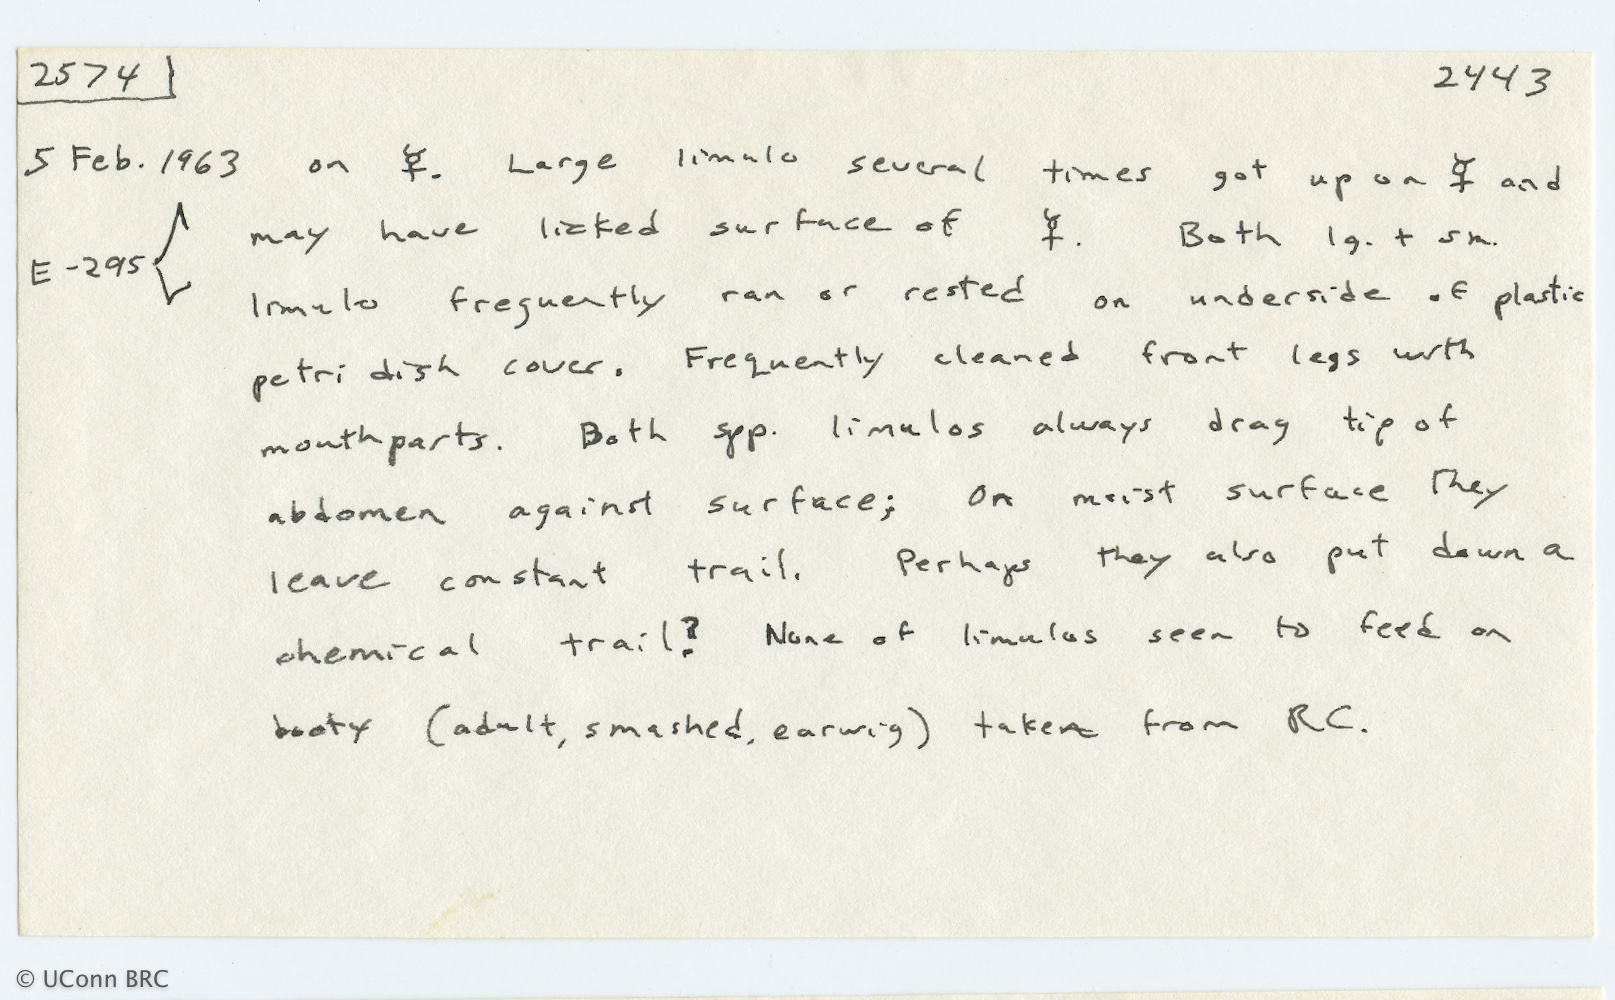 2574 2443
5 Feb. 1963 on ☿. Large limulo several times got up on ☿ and
may have licked surface of ☿. Both lg. + sm.
E-295
limulo frequently ran or rested on underside of plastic
petri dish cover. Frequently cleaned front legs with
mouthparts. Both spp. limulos always drag tip of
abdomen against surface; On moist surface they
leave constant trail. Perhaps they also put down a
chemical trail? None of limulos seen to feed on
booty (adult, smashed, earwig) taken from RC.
© UConn BRC